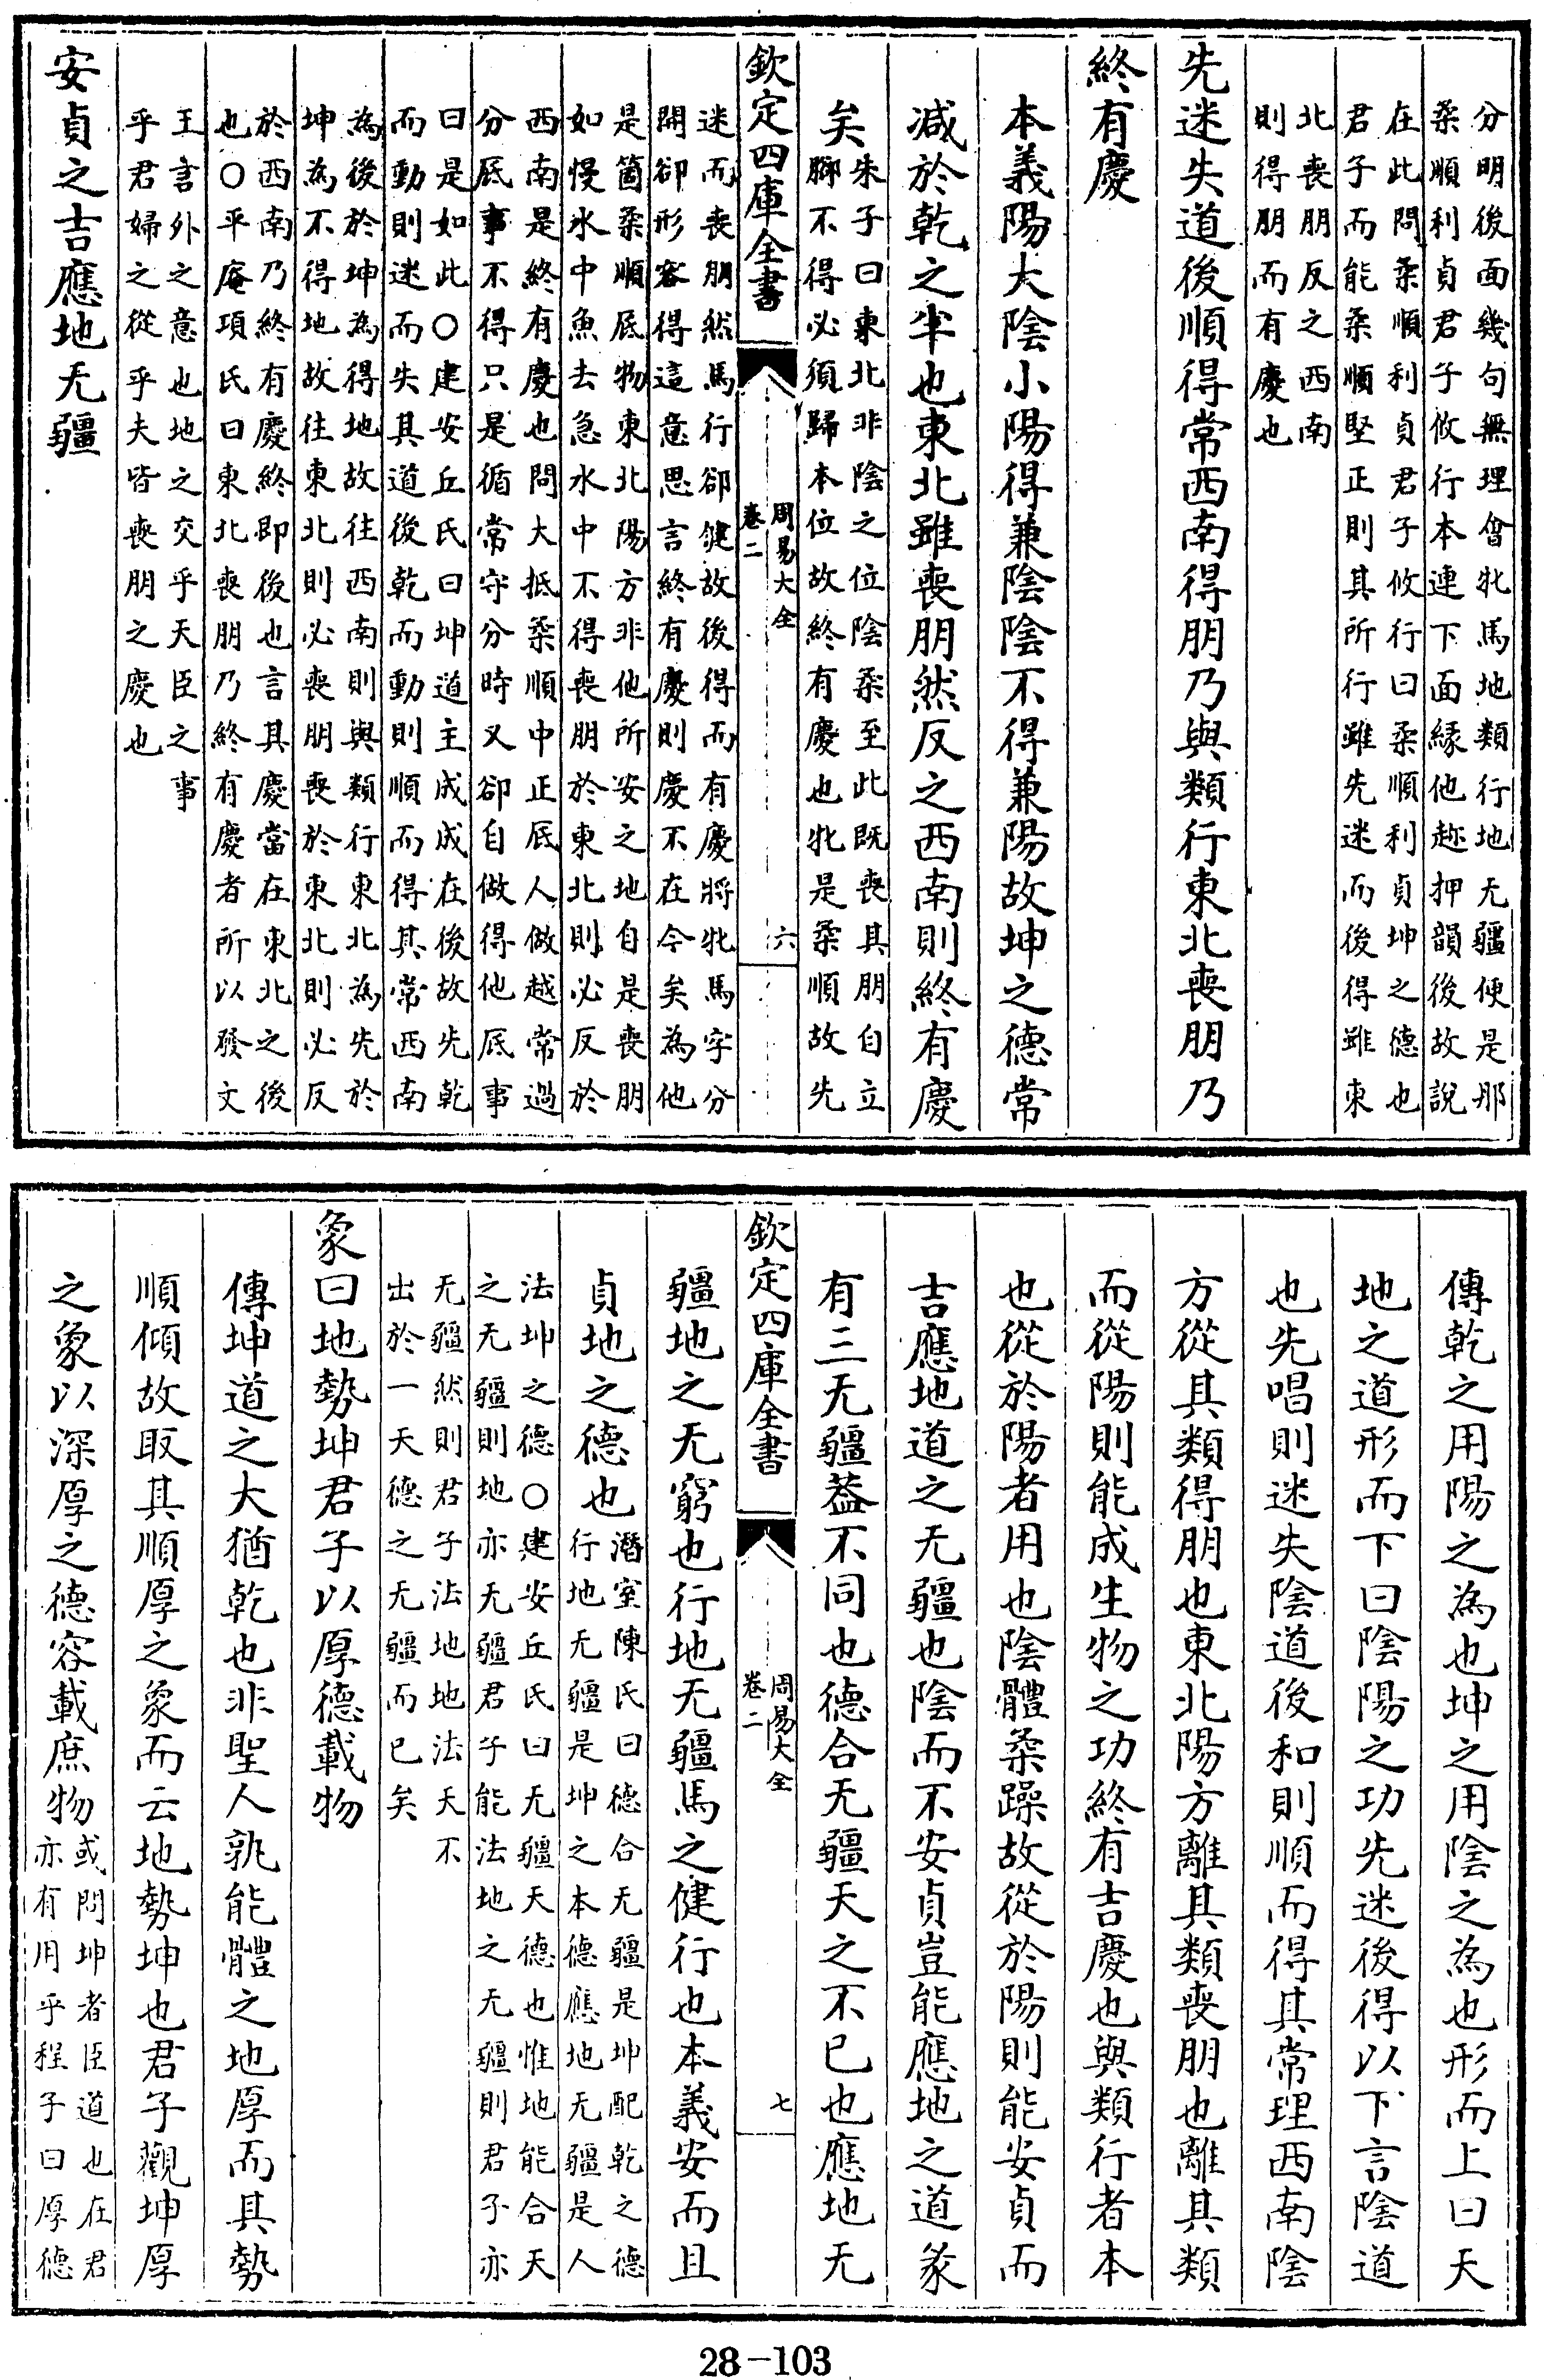 分明後面幾句無理會牝馬地類行地无疆便是那
柔順利貞君子攸行本連下面緣他趂押韻後故說
在此問柔順利貞君子攸行曰柔順利貞坤之德也
君子而能柔順堅正則其所行雖先迷而後得雖東
北喪朋反之西南
則得朋而有慶也
先迷失道後順得常西南得朋乃與類行東北喪朋乃
終有慶
本義陽大陰小陽得兼陰陰不得兼陽故坤之德常
減於乾之半也東北雖喪朋然反之西南則終有慶
矣
朱子曰東北非陰之位陰柔至此既喪其朋自立
腳不得必須歸本位故終有慶也牝是柔順故先
欽定四庫全書
周易大全
卷二
六
迷而喪朋然馬行卻健故後得而有慶將牝馬字分
開卻形容得這意思言終有慶則慶不在今矣為他
是箇柔順底物東北陽方非他所安之地自是喪朋
如慢水中魚去急水中不得喪朋於東北則必反於
西南是終有慶也問大抵柔順中正底人做越常過
分底事不得只是循常守分時又卻自做得他底事
曰是如此○建安丘氏曰坤道主成成在後故先乾
而動則迷而失其道後乾而動則順而得其常西南
為後於坤為得地故往西南則與類行東北為先於
坤為不得地故往東北則必喪朋喪於東北則必反
於西南乃終有慶終即後也言其慶當在東北之後
也○平庵項氏曰東北喪朋乃終有慶者所以發文
王言外之意也地之交乎天臣之事
乎君婦之從乎夫皆喪朋之慶也
安貞之吉應地无疆
傳乾之用陽之為也坤之用陰之為也形而上曰天
地之道形而下曰陰陽之功先迷後得以下言陰道
也先唱則迷失陰道後和則順而得其常理西南陰
方從其類得朋也東北陽方離其類喪朋也離其類
而從陽則能成生物之功終有吉慶也與類行者本
也從於陽者用也陰體柔躁故從於陽則能安貞而
吉應地道之无疆也陰而不安貞豈能應地之道彖
有三无疆葢不同也德合无疆天之不已也應地无
欽定四庫全書
周易大全
卷二
七
疆地之无窮也行地无疆馬之健行也本義安而且
貞地之德也
潛室陳氏曰德合无疆是坤配乾之德
行地无疆是坤之本德應地无疆是人
法坤之德○建安丘氏曰无疆天德也惟地能合天
之无疆則地亦无疆君子能法地之无疆則君子亦
无疆然則君子法地地法天不
出於一天德之无疆而已矣
象曰地勢坤君子以厚德載物
傳坤道之大猶乾也非聖人孰能體之地厚而其勢
順傾故取其順厚之象而云地勢坤也君子觀坤厚
之象以深厚之德容載庶物
或問坤者臣道也在君
亦有用乎程子曰厚德
28-103